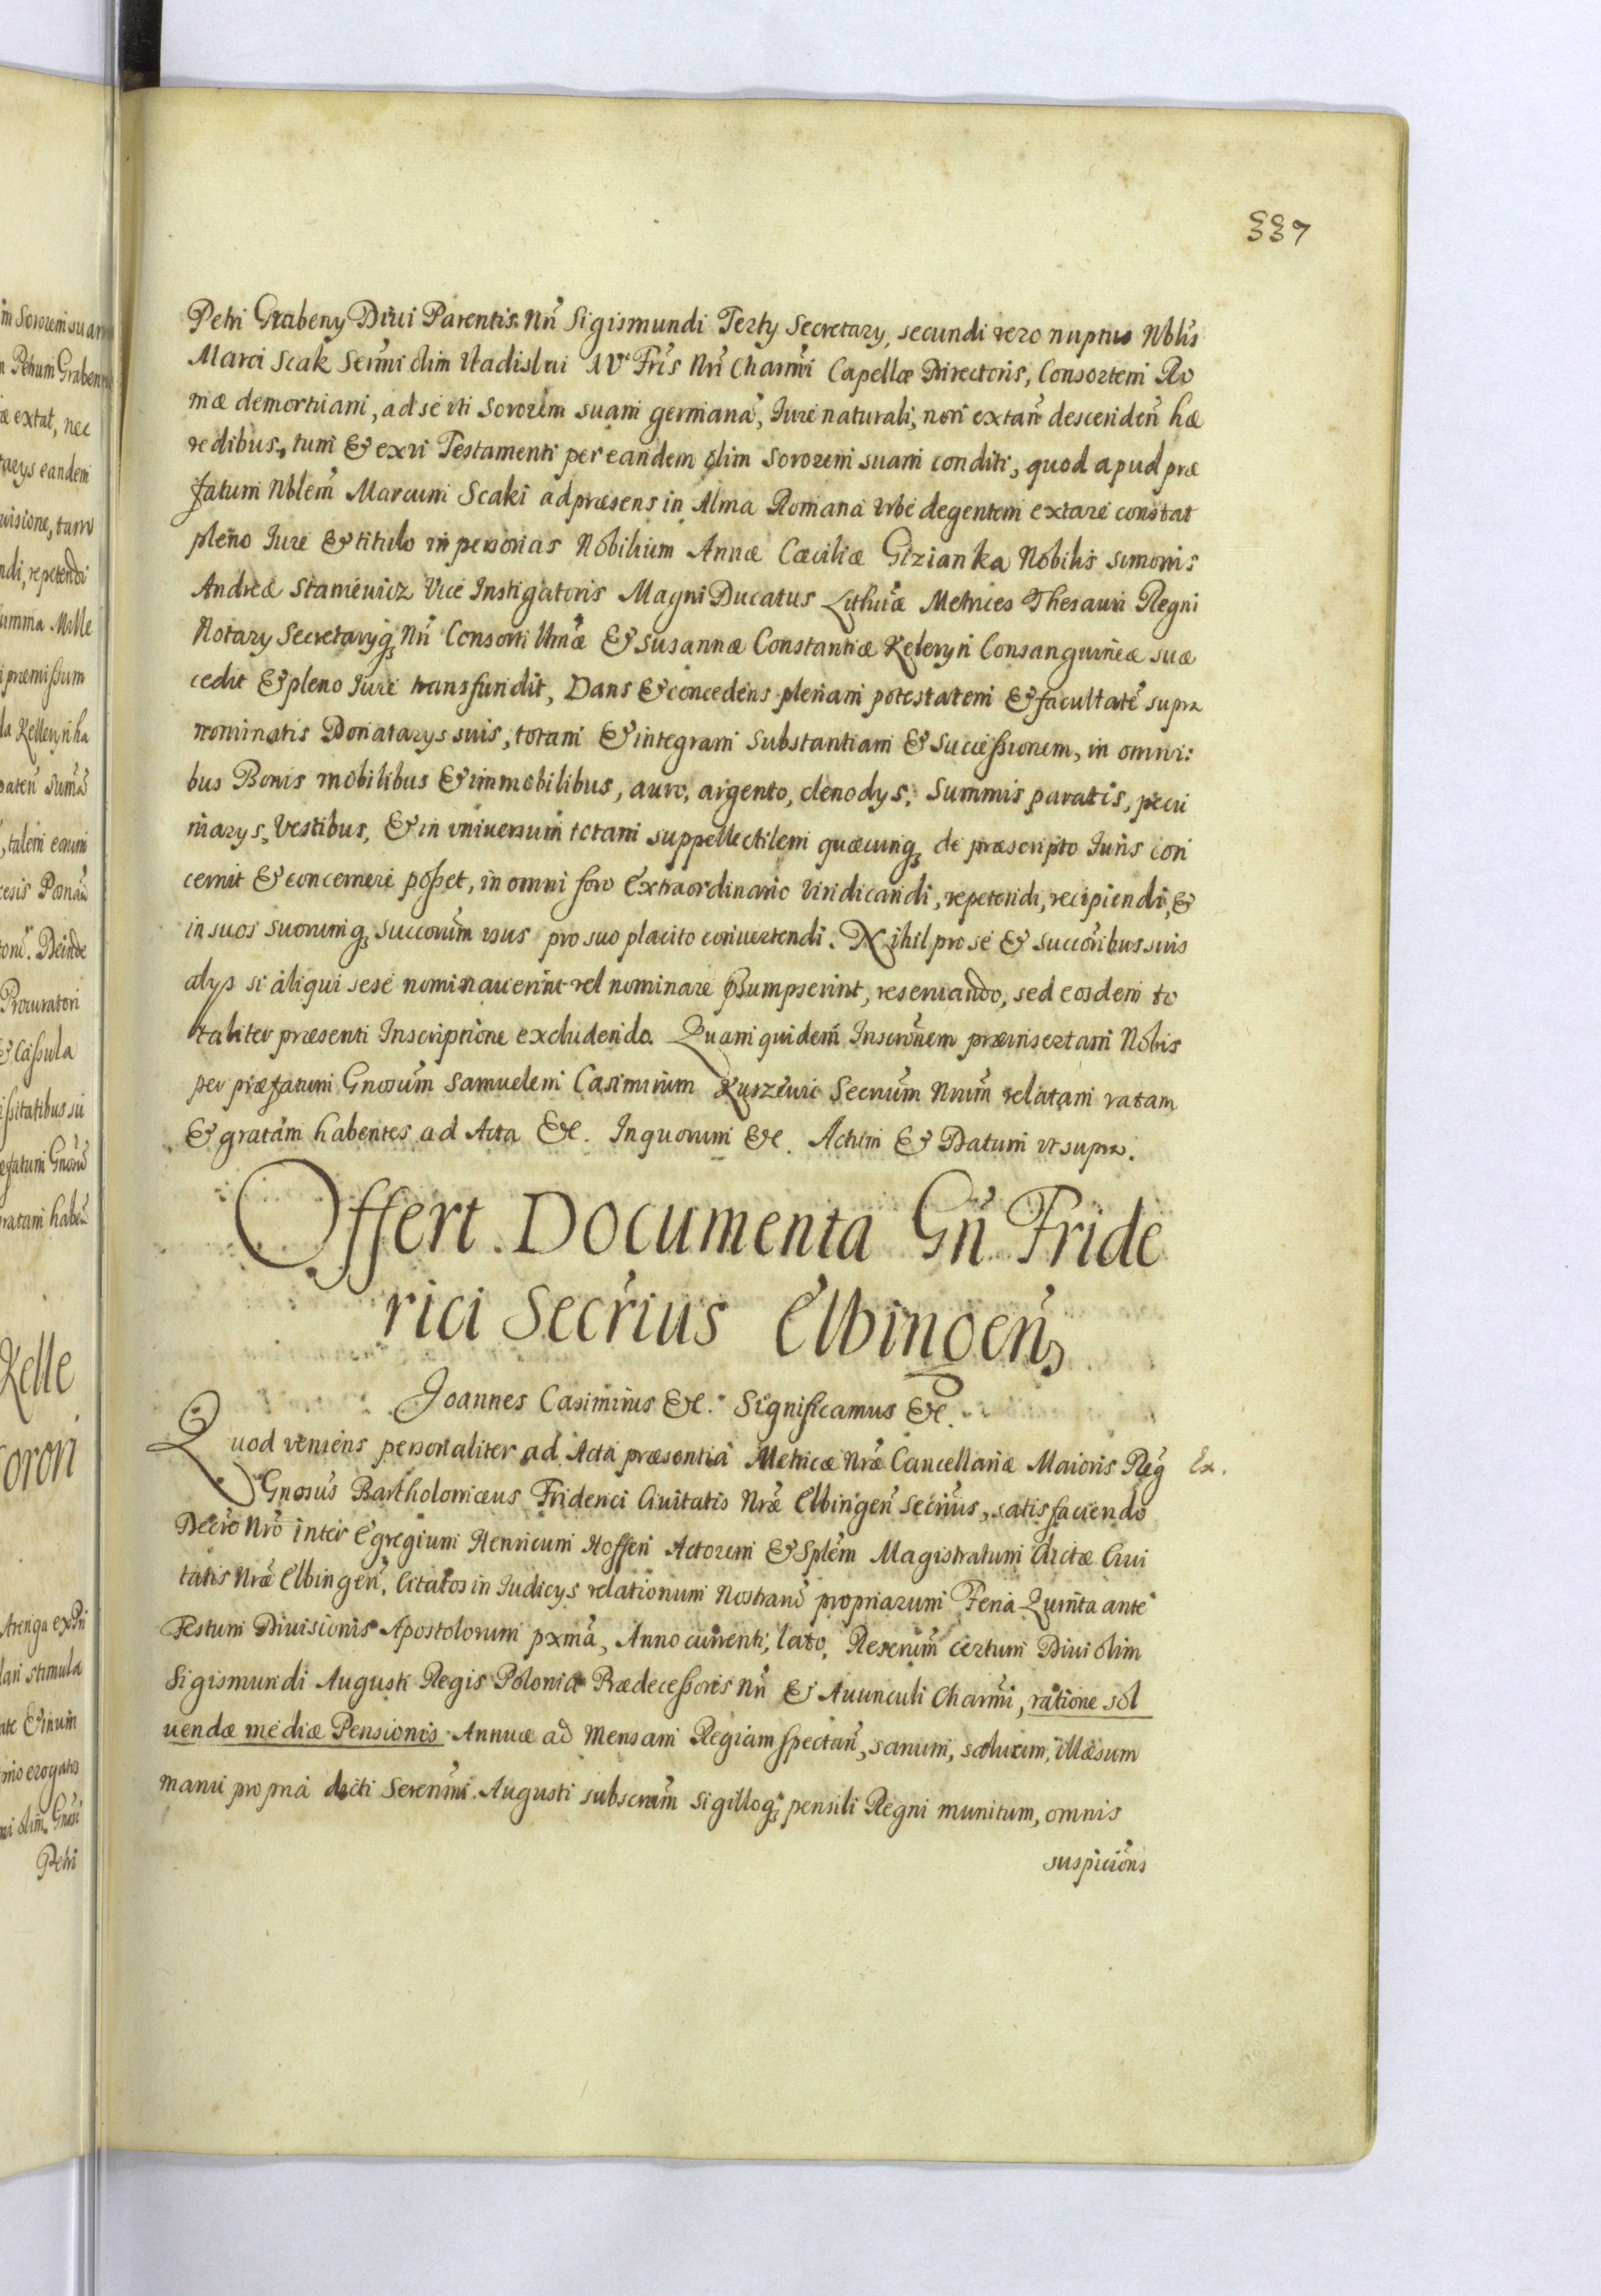 337
Petri Grabeny Diui Parentis Nri Sigismundi Tertÿ Secretarÿ, secundi vero nuptus Nblis
Marci Scak Sermi olim Vladislai IVti Fris Nri Charmi Capellæ Directoris, Consortem Ro
mæ demortuam, ad se vti Sororem suam germanã, Iure naturali, non extan̄ descenden̄ hæ
redibus, tum & ex vi Testamenti per eandem olim Sororem suam conditi, quod apud præ
fatum Nblem Marcum Scaki ad præsens in Alma Romana Vrbe degentem extare constat
pleno Iure & titulo in personas Nobilium Annæ Cæciliæ Gizianka Nobilis Simonis
Andreæ Staniewicz Vice Instigatoris Magni Ducatus Lithuæ Metrices Thesauri Regni
Notarÿ Secretarÿq̃ Nri Consorti & Susannæ Constantiæ Keleryn Consanguineæ suæ
cedit & pleno Iure transfundit, Dans & concedens plenam potestatem & facultatẽ supra
nominatis Donatarÿs suis, totam & integram Substantiam & Successionem, in omni:
bus Bonis mobilibus & immobilibus, auro, argento, clenodÿs, Summis paratis, pecu
niarÿs, Vestibus, & in vniuersum totam suppellectilem quæcunq̃ de præscripto Iuris con
cernit & concernere posset, in omni foro Extraordinario Vindicandi, repetendi, recipiendi, &
in suos suorumq̃ succorum vsus pro suo placito conuertendi. Nihil pro se & succoribus suis
alÿs si aliqui sese nominauerint vel nominare præsumpserint, reseruando, sed eosdem to
taliter præsenti Inscriptione excludendo. Quam quidem Inscronem præinsertam Nobis
per præfatum Gnosum Samuelem Casimirum Kuszewic Secrium Nrum relatam ratam
& gratam habentes ad Acta &c. In quorum &c. Actum & Datum vt supra.
Offert Documenta Gn̄ Fride
rici Secrius Elbingen̄
Joannes Casimirus &c. Significamus &c.
Quod veniens personaliter ad Acta præsentia Metricæ Nræ Cancellariæ Maioris Reg̃ Ex.
Gnosus Bartholomæus Friderici Ciuitatis Nræ Elbingen̄ Secrius, satisfaciendo
Decro Nro inter Egregium Henricum Hoffen Actorem & Splem Magistratum dictæ Ciui
tatis Nræ Elbingen̄, Citatos in Iudicÿs relationum Nostrarũ propriarum Feria Quinta ante
Festum Diuisionis Apostolorum pxma, Anno currenti, lato, Rescrum certum Diui olim
Sigismundi Augusti Regis Poloniæ Prædecessoris Nri & Auunculi Charmi, ratione sol
uendæ mediæ Pensionis Annuæ ad Mensam Regiam spectan̄, sanum, saluum, illæsum
manu propria dicti Serenmi Augusti subscrum Sigilloq̃ pensili Regni munitum, omnis
suspicions
im Sororem suam
m Petrum Graben
æ extat, nec
tarÿs eandem
uisione, tam
ndi, repetendi
umma Mille
præmissum
la Kelleryn ha
paten̄ Sum̃ã
, talem eorum
Deinde
Procuratori
& Cassula
ssitatibus su
efatum Gnosũ
gratam haben̄
Kelle
orori
Arenga ex Pri
stimula
mo erogatis
mi olim Gnosi
Petri